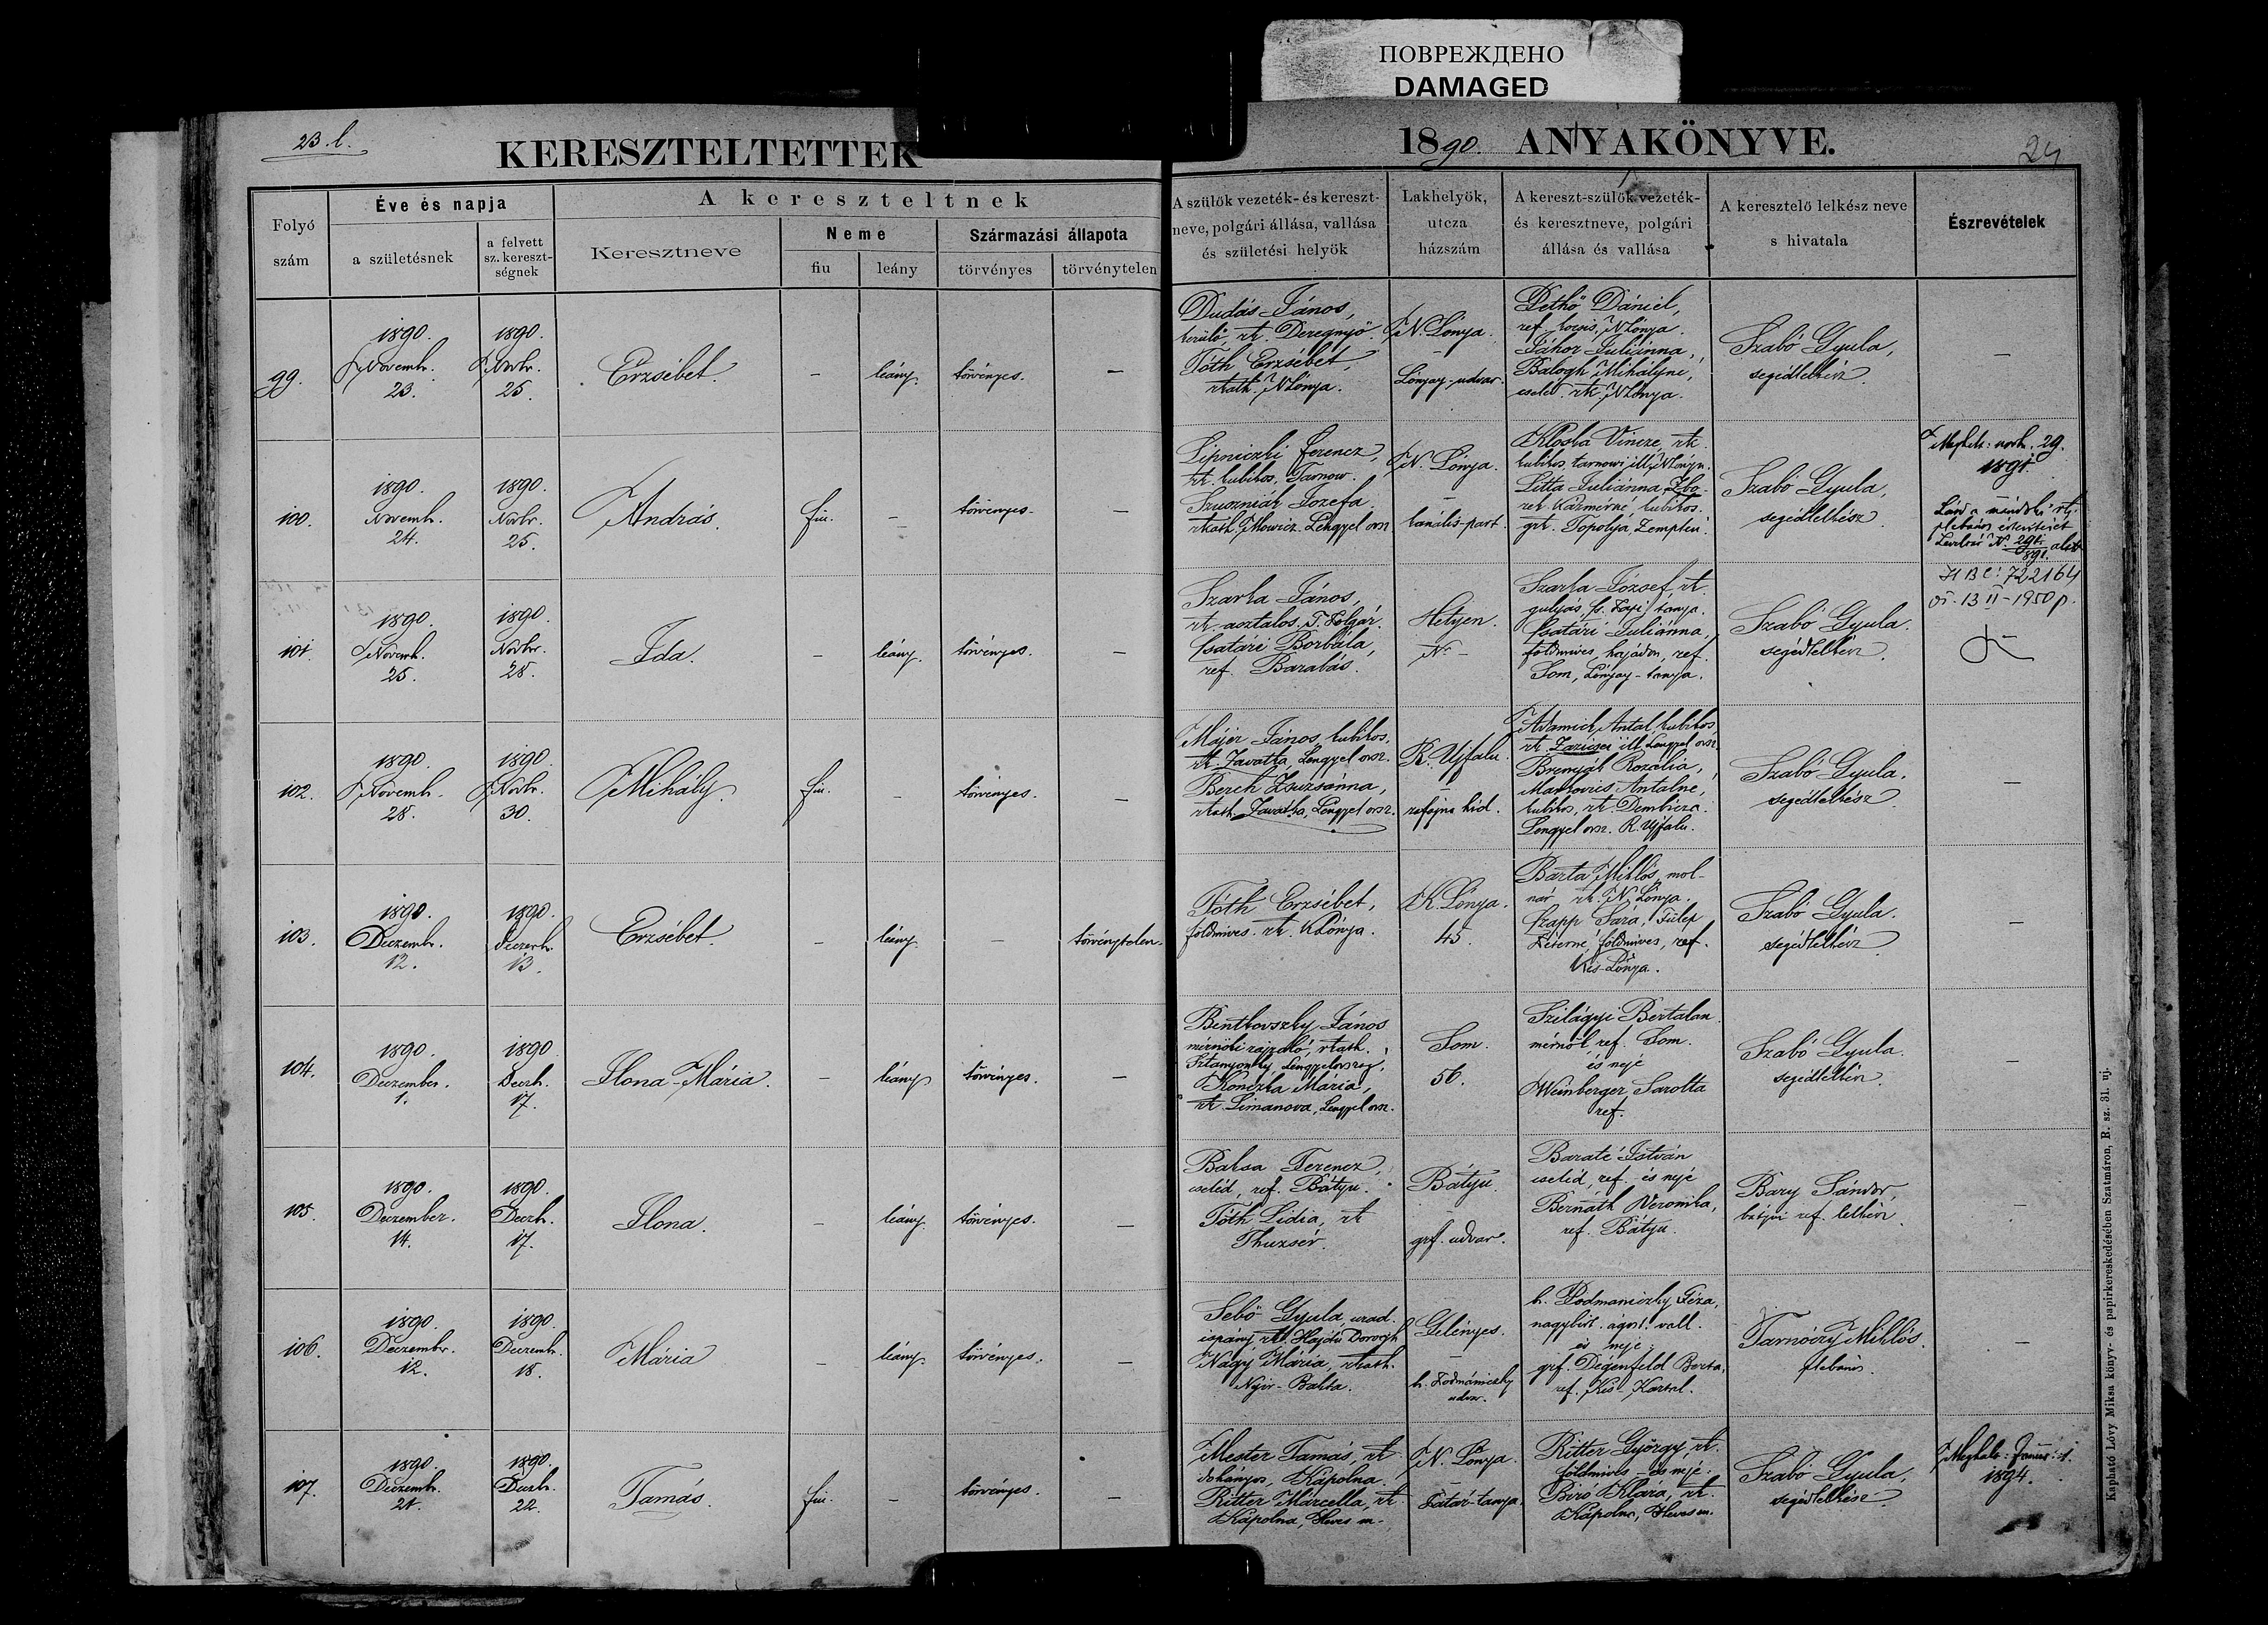 ПОВРЕЖДЕНО
DAMAGED
23.l.
KERESZTELTETTEK
1890. ANYAKÖNYVE.
24
Folyó szám
Éve és napja
a születésnek
a felvett sz. kereszt-ségnek
A kereszteltnek
Keresztneve
Neme
fiu
leány
Származási állapota
törvényes
törvénytelen
A szülők vezeték- és kereszt-
neve, polgári állása, vallása
és születési helyök
Lakhelyök,
utcza
házszám
A kereszt-szülők vezeték-
és keresztneve, polgári
állása és vallása
A keresztelő lelkész neve
s hivatala
Észrevételek
99.
1890.
Novembr.
23.
1890.
Novbr.
25.
Erzsébet.
–
leány.
törvényes.
–
Dudás János,
kerülő, rk. Deregnyő.
Tóth Erzsébet,
rkath. N Lónya.
N. Lónya.
–
Lónyay-udvar.
Pethő Dániel,
ref. N Lónya.
Juliánna,
Balogh Mihályné,
cseléd. rk. N Lónya.
Szabó Gyula,
segédlelkész.
–
100.
1890.
Novembr.
24.
1890.
Novbr.
25.
András.
fiu.
–
törvényes.
–
Lipniczki Ferencz,
rk. kubikos, Tarnow.
Szuszniák Jozefa,
rkath. Lengyel orsz.
N. Lónya.
–
kanális-part.
Kloska Vincze, rk.
kubikos, tarnowi ill. N Lónya.
Litta Juliánna, Zbo-
rek Kázmérné, kubikos.
grk. Topolya, Zemplén.
Szabó Gyula,
segédlelkész.
Meghalt: novb. 29.
1891.
Lásd a mándoki rk.
plebános értesítését
Levéltár N. 29ti/891. alatt
101.
1890.
Novemb.
25.
1890.
Novbr.
28.
Ida.
–
leány.
törvényes.
–
Szarka János,
rk. asztalos. T. Polgár.
Csatári Borbála,
ref. Barabás.
Hetyen.
N. –
Szarka József, rk.
gulyás, tanya.
Csatári Juliánna,
földmives, hajadon, ref.
Som, Lónyay-tanya.
Szabó Gyula.
segédlelkész.
722164
13 II–1950 p.
102.
1890.
Novembr.
28.
1890.
Novbr.
30.
Mihály.
fiu.
–
törvényes.
–
Májer János, kubikos,
rk. Zavatka, Lengyel orsz.
Berch Zsuzsánna,
rkath. Zavatka, Lengyel orsz.
R. Ujfalu.
–
rafajna hid.
Adamich Antal kubikos
rk. Zaricsei ill. Lengyel orsz.
Brenyák Rozália,
Markovics Antalné,
kubikos, rk. Dembicza.
Lengyel orsz. R. Ujfalu.
Szabó Gyula.
segédlelkész.
–
103.
1890.
Deczembr.
12.
1890.
deczerb.
13.
Erzsébet.
–
leány.
–
törvénytelen.
Tóth Erzsébet,
földmives. rk. K Lónya.
K. Lónya.
45.
Barta Miklós, mol-
nár rk. N. Lónya.
Czapp Sára, Fülep
Péterné, földmives, ref.
Kis-Lónya.
Szabó Gyula.
segédlelkész
–
104.
1890.
Deczember.
1.
1890
Deczb.
17.
Ilona-Mária.
–
leány
törvényes.
–
Bentkovszky János
mérnöki rajzoló, rkath.
Lengyelország,
Koniczka Mária,
rk. Limanova, Lengyel orsz.
Som.
56.
Szilágyi Bertalan.
mérnök, ref. Som.
és nejé
Weinberger Sarolta
ref.
Szabó Gyula.
segédlelkész.
–
105.
1890.
Deczember.
14.
1890.
Deczb.
17.
Ilona.
–
leány.
törvényes.
–
Baksa Ferencz,
cseléd, ref. Bátyu.
Tóth Lidia, rk
Thuzsér.
Bátyu.
grf. udvar.
Baraté István
cseléd, ref. és nejé
Bernáth Veronika,
ref. Bátyu.
Bary Sándor,
bátyui ref. lelkész.
–
106.
1890.
Deczembr.
12.
1890.
Deczembr.
18.
Mária
–
leány.
törvényes.
–
Sebő Gyula urad.
ispány rk. Hajdu Dorogh
Nagy Mária, rkath.
Nyir-Bakta.
Gelényes.
–
b. Podmániczky
udvar.
b. Podmaniczky Géza,
nagybirt. ágost. vall.
és nejé
grf. Degenfeld Berta,
ref. Kis-Kartal.
Tarnóczy Miklós.
plebános.
–
107.
1890.
Deczembr.
21.
1890.
Deczbr.
22.
Tamás.
fiu.
–
törvényes.
–
Mester Tamás, rk.
dohányos, Kápolna.
Ritter Márcella, rk.
Kápolna, Heves m.
N. Lónya.
–
Tatár-tanya.
Ritter György, rk.
földmives – és nejé.
Biró Klára, rk.
Kápolna, Heves m.
Szabó Gyula,
segédlelkész
Meghalt: Január: 1.
1894.
Kapható Lövy Miksa könyv- és papirkereskedésében Szatmáron, R. sz. 31. uj.